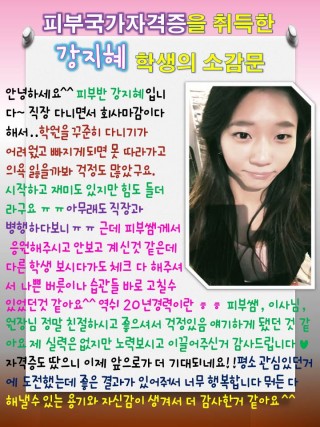 피부국가자격증을 취득한
강지혜 학생의 소감문
안녕하세요^^ 피부반 강지혜입니
다~ 직장 다니면서 회사마감이다
해서..학원을 꾸준히 다니기가
어려웠고 빠지게되면 못 따라가고
의욕 잃을까봐 걱정도 많았구요.
시작하고 재미도 있지만 힘도 들더
라구요 ㅠㅠ아무래도 직장과
병행하다보니ㅠㅠ 근데 피부쌤께서
응원해주시고 안보고 계신것 같은데
다른 학생 보시다가도 체크 다 해주셔
서 나쁜 버릇이나 습관들 바로 고칠수
있었던것 같아요^^ 역쉬 20년경력이란 ㅎㅎ 피부쌤, 이사님,
원장님 정말 친절하시고 좋으셔서 걱정있음 얘기하게 됐던 것 같
아요 제 실력은 없지만 노력보시고 이끌어주신거 감사드립니다♥
자격증도 땄으니 이제 앞으로가 더 기대되네요!!평소 관심있던거
에 도전했는데 좋은 결과가 있어주서 너무 행복합니다 뭐든 다
해낼수 있는 용기와 자신감이 생겨서 더 감사한거 같아요^^